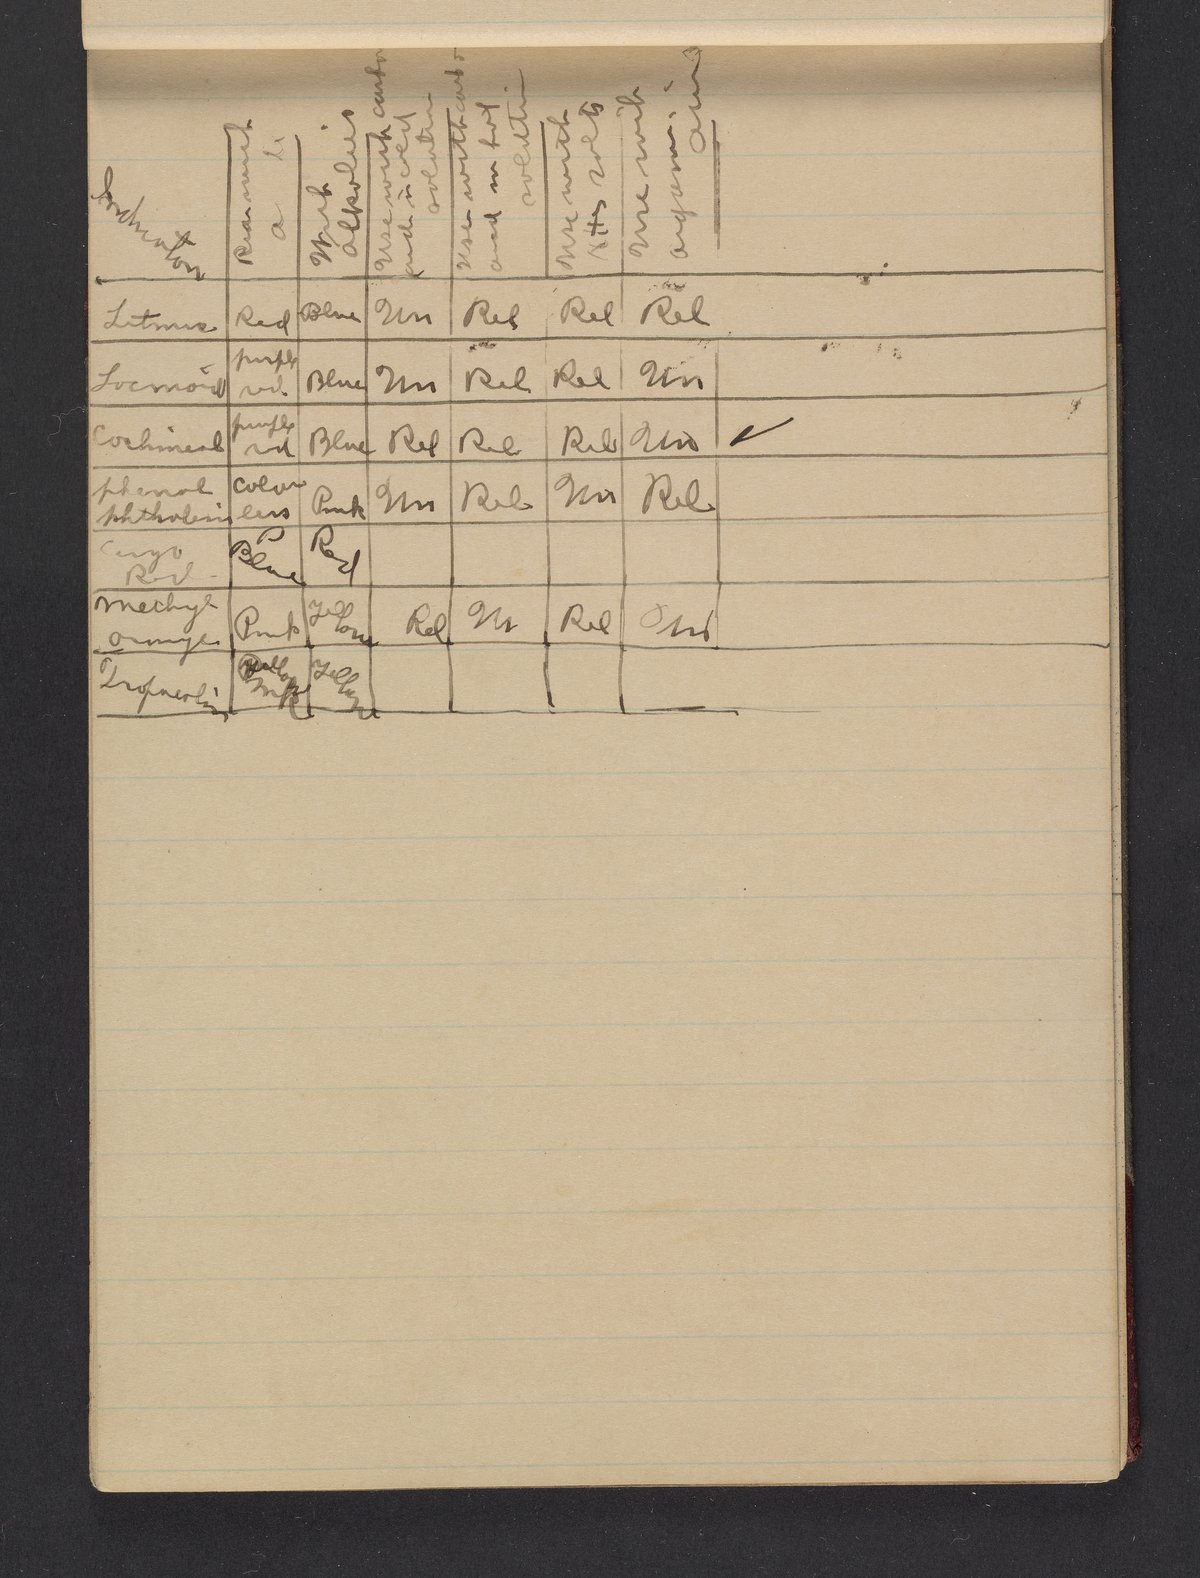 Indicator
Reac with
a
With
alkalies
Use with carbo
and in cold
solution
Use with carbo
and in hot
solution
Use with
salts
Use with
organic
acid
Litmus Red Blue Un Rel Rel Rel
purple
Lacmoid red Blue Un Rel Rel Un
purple
Cochineal red Blue Rel Rel Rel Un ✓
phenol color
phthalein less Pink Un Rel Un Rel
Congo
Red Blue Red
methyl Yel
orange Pink low Rel Un Rel Un
Yellow Yel
Tropaeolin low